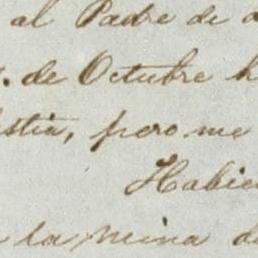 al Padre de
. de Octubre h
stia, pero me
Habie
la Mina de